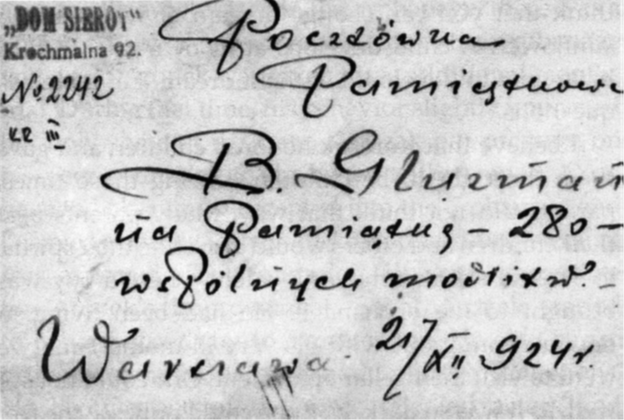 „DOM SIEROT"
Krochmalna 92.
No 2242
KR III
Pocztówka
Pamiątkowa
B Glizman
na Pamiatkę – 280 –
wspólnych modlitw. –
Warszawa 21/XII 924 r